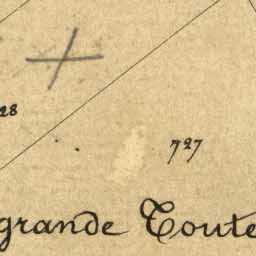 28
727
grande Toute